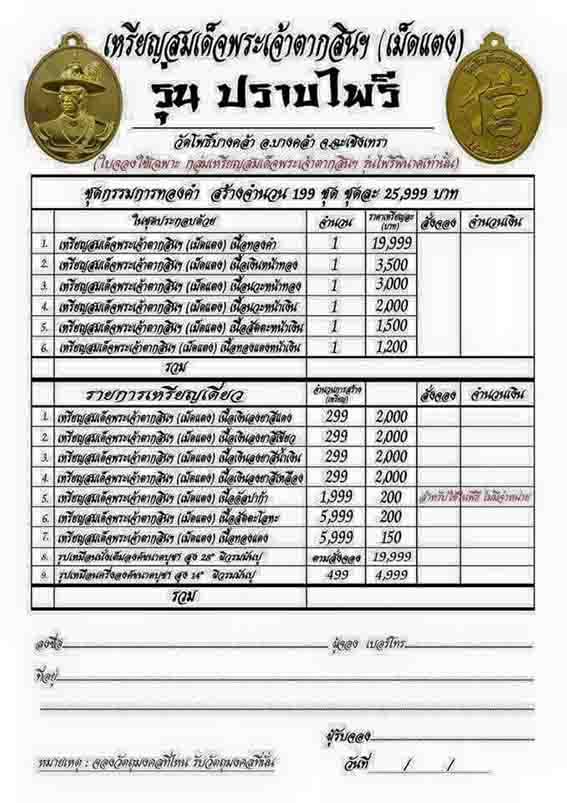 เหรียญสมเด็จพระเจ้าตากสินฯ (เม็ดแตง)
รุ่น ปราบไพรี
วัดโพธิ์บางคล้า อ.บางคล้า จ.ฉะเชิงเทรา
(ใบจองใช้เฉพาะ กลุ่มเหรียญสมเด็จพระเจ้าตากสินฯ รุ่นไพรีพินาศเท่านั้น)
信
ชุดกรรมการทองคำ สร้างจำนวน 199 ชุด ชุดละ 25,999 บาท
ในชุดประกอบด้วย จำนวน ราคาเหรียญละ (บาท) สั่งจอง จำนวนเงิน
1. เหรียญสมเด็จพระเจ้าตากสินฯ (เม็ดแตง) เนื้อทองคำ 1 19,999
2. เหรียญสมเด็จพระเจ้าตากสินฯ (เม็ดแตง) เนื้อเงินหน้าทอง 1 3,500
3. เหรียญสมเด็จพระเจ้าตากสินฯ (เม็ดแตง) เนื้อนวะหน้าทอง 1 3,000
4. เหรียญสมเด็จพระเจ้าตากสินฯ (เม็ดแตง) เนื้อนวะหน้าเงิน 1 2,000
5. เหรียญสมเด็จพระเจ้าตากสินฯ (เม็ดแตง) เนื้อสัตตะหน้าเงิน 1 1,500
6. เหรียญสมเด็จพระเจ้าตากสินฯ (เม็ดแตง) เนื้อทองแดงหน้าเงิน 1 1,200
รวม
รายการเหรียญเดี่ยว จำนวนการสร้าง (เหรียญ) สั่งจอง จำนวนเงิน
1. เหรียญสมเด็จพระเจ้าตากสินฯ (เม็ดแตง) เนื้อเงินลงยาสีแดง 299 2,000
2. เหรียญสมเด็จพระเจ้าตากสินฯ (เม็ดแตง) เนื้อเงินลงยาสีเขียว 299 2,000
3. เหรียญสมเด็จพระเจ้าตากสินฯ (เม็ดแตง) เนื้อเงินลงยาสีน้ำเงิน 299 2,000
4. เหรียญสมเด็จพระเจ้าตากสินฯ (เม็ดแตง) เนื้อเงินลงยาสีเหลือง 299 2,000
5. เหรียญสมเด็จพระเจ้าตากสินฯ (เม็ดแตง) เนื้ออัลปาก้า 1,999 200 สำหรับใช้ในพิธี ไม่มีจำหน่าย
6. เหรียญสมเด็จพระเจ้าตากสินฯ (เม็ดแตง) เนื้อสัตตะโลหะ 5,999 200
7. เหรียญสมเด็จพระเจ้าตากสินฯ (เม็ดแตง) เนื้อทองแดง 5,999 150
8. รูปเหมือนนั่งเต็มองค์ขนาดบูชา สูง 28" ผิวรมมันปู ตามสั่งจอง 19,999
9. รูปเหมือนครึ่งองค์ขนาดบูชา สูง 14" ผิวรมมันปู 499 4,999
รวม
ลงชื่อ ผู้จอง เบอร์โทร
ที่อยู่
ผู้รับจอง
หมายเหตุ : จองวัตถุมงคลที่ไหน รับวัตถุมงคลที่นั่น วันที่ / /